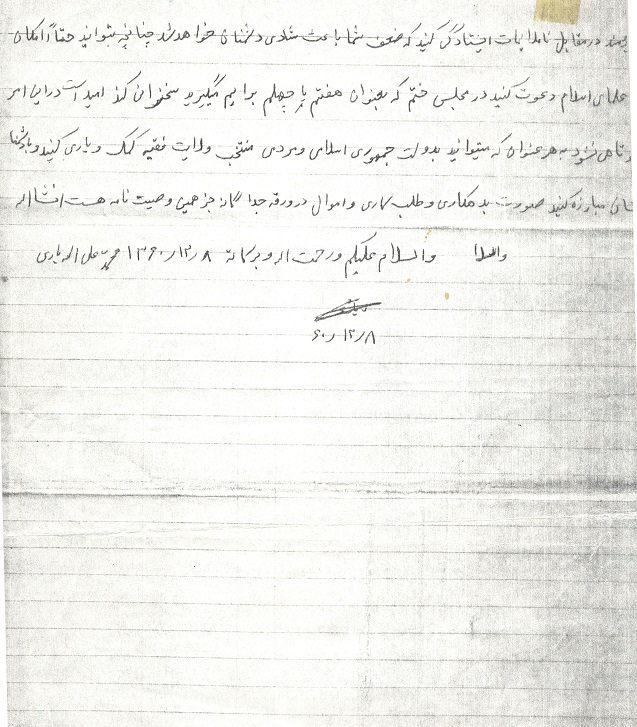 در مقابل ناملایمات ایستادگی کنید که ضعف شما باعث شادی دشمنان خواهد شد چنانچه بتوانید حتماً از امکان
علمای اسلام دعوت کنید در مجلس ختم که بعنوان هفتم یا چهلم برایم میگیرید سخنرانی کند امید است در این امر
نشود به هر عنوان که میتوانید بدولت جمهوری اسلامی و مردمی منتخب ولایت فقیه کمک و یاری کنید و با
مبارزه کنید صورت بدهکاری و طلب کاری و اموال در ورقه جداگانه جز همین وصیت نامه هست انشااله
والسلام والسلام علیکم ورحمت اله و برکاته ۱۳۶۰/۱۲/۸ محمد علی اله یاری
۶۰/۱۲/۸